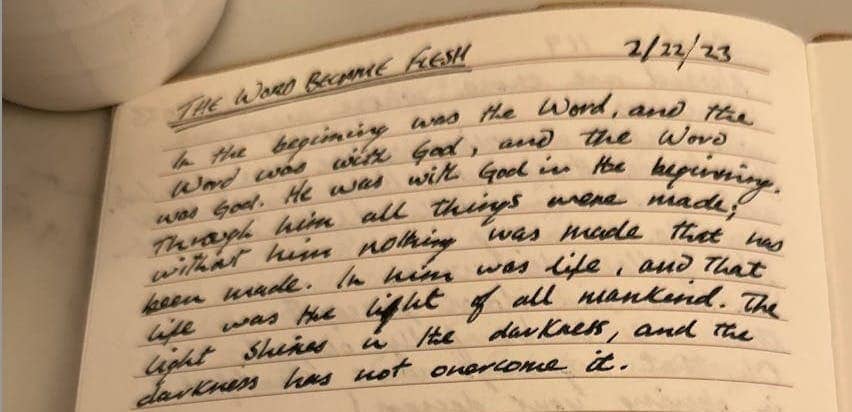 THE WORD BECAME FLESH 2/22/23
In the beginning was the Word, and the
Word was with God, and the Word
was God. He was with God in the beginning.
Through him all things were made;
without him nothing was made that has
been made. In him was life, and that
life was the light of all mankind. The
light shines in the darkness, and the
darkness has not overcome it.